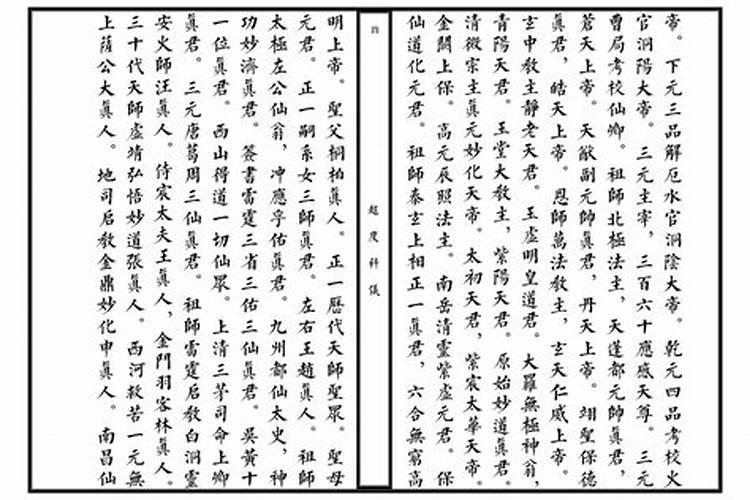 帝。下元三品解厄水官洞陰大帝。乾元四品考校火
官洞陽大帝。三元主宰,三百六十應感天尊。三元
曹局考校仙卿。祖師北極法主,天蓬都元帥眞君,
蒼天上帝。天猷副元帥眞君,丹天上帝。翊聖保德
眞君,皓天上帝。恩師萬法教主,玄天仁威上帝。
玄中教主靜老天君。玉虛明皇道君。大羅無極神翁,
青陽天君。玉堂大教主,紫陽天君。原始妙道眞君。
清微宗主眞元妙化天帝。太初天君,紫宸太華天帝。
金闕上保。高元辰照法主。南岳清靈紫虛元君。保
仙道化元君。祖師泰玄上相正一眞君,六合無窮高
四
超度科儀
明上帝。聖父桐柏眞人。正一曆代天師聖眾。聖母
元君。正一嗣系女三師眞君。左右王趙眞人。祖師
太極左公仙翁,冲應孚佑眞君。九州都仙太史,神
功妙濟眞君。簽書雷霆三省三佑三仙眞君。吳黃十
一位眞君。西山得道一切仙眾。上清三茅司命上卿
眞君。三元唐葛周三仙眞君。祖師雷霆启教白洞靈
安火師汪眞人。侍宸太夫王眞人,金門羽客林眞人。
三十代天師虛靖弘悟妙道張眞人。西河救苦一元無
上薩公大眞人。地司启教金鼎妙化申眞人。南昌仙